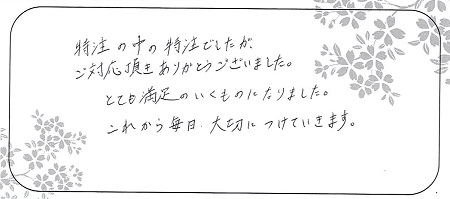 特注の中の特注でしたが、
ご対応頂きありがとうございました。
とても満足のいくものになりました。
これから毎日、大切につけていきます。